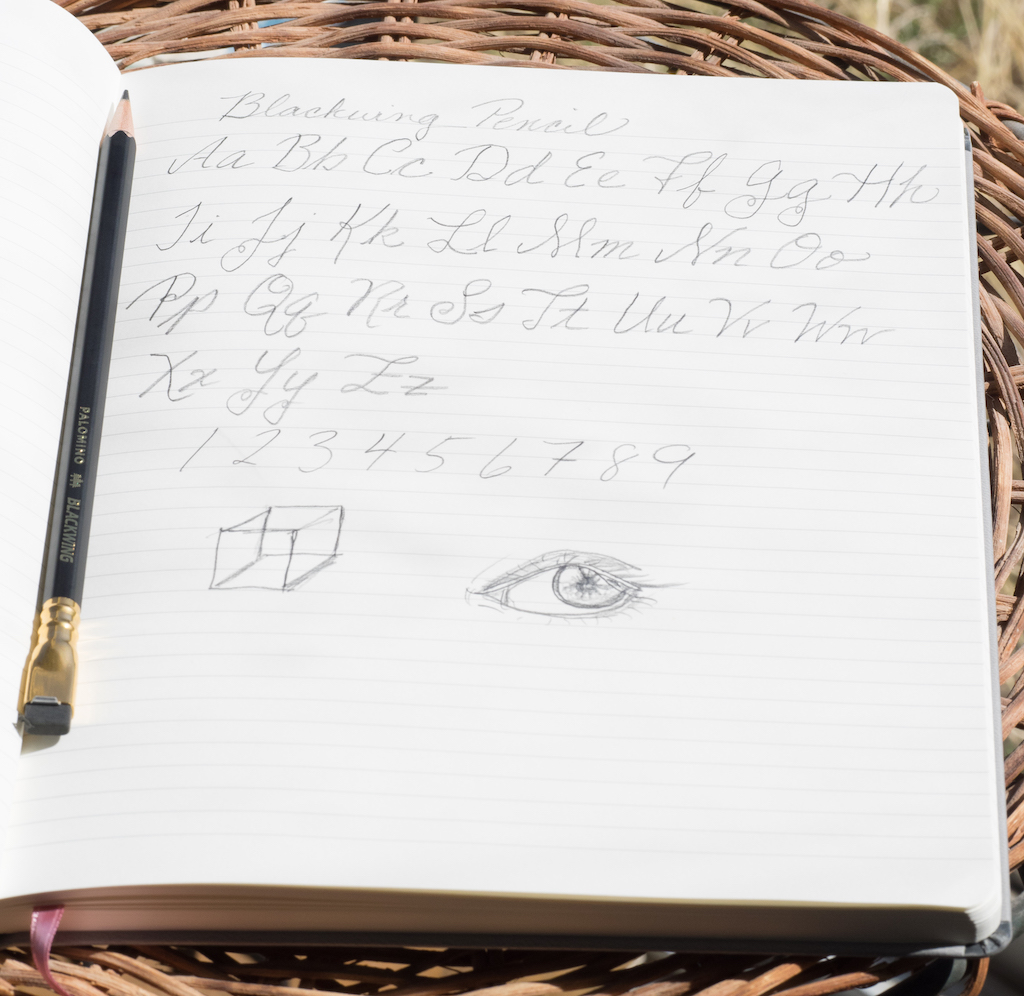 Blackwing Pencil
Aa Bb Cc Dd Ee Ff Gg Hh
Ii Jj Kk Ll Mm Nn Oo
Pp Qq Rr Ss Tt Uu Vv Ww
Xx Yy Zz
1 2 3 4 5 6 7 8 9
PALOMINO BLACKWING